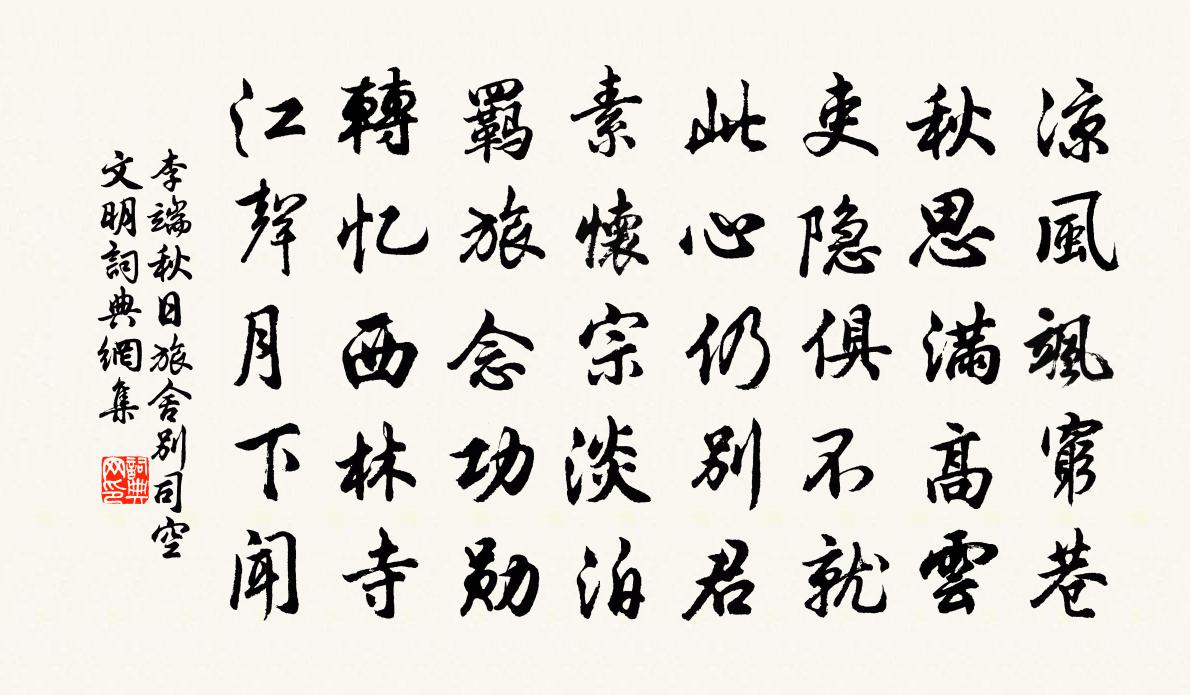 涼風颯窮巷
秋思滿高雲
吏隐俱不就
此心仍別君
素懷宗淡泊
羁旅念功勋
轉忆西林寺
江聲月下聞
李端秋日旅舍別司空
文明詞典網集
詞典網印